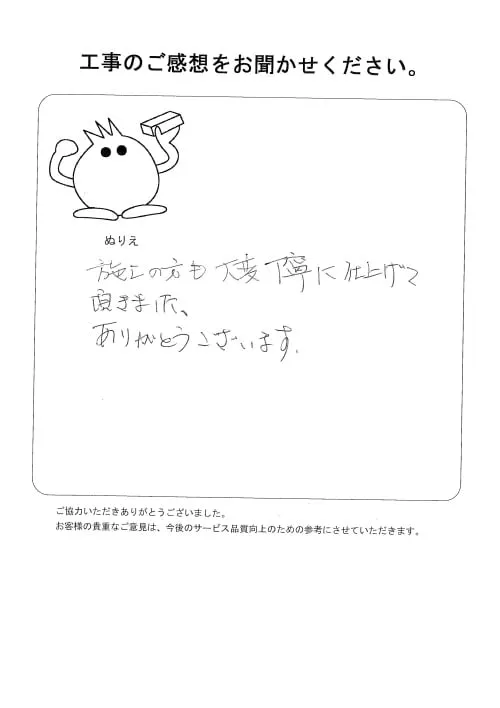 工事のご感想をお聞かせください。
ぬりえ
施工の方も大変丁寧に仕上げて
頂きました、
ありがとうございます.
ご協力いただきありがとうございました。
お客様の貴重なご意見は、今後のサービス品質向上のための参考にさせていただきます。